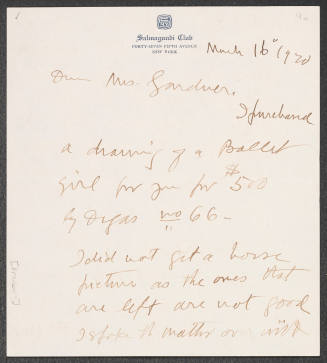 Salmagundi Club
FORTY-SEVEN FIFTH AVENUE
NEW YORK
March 16" 1920
Dear Mrs. Gardner,
I purchased
a drawing of a Ballet
girl for you for $500
by Degas no 66 -
I did not get a horse
picture as the ones that
are left are not good
I spoke the matter over with